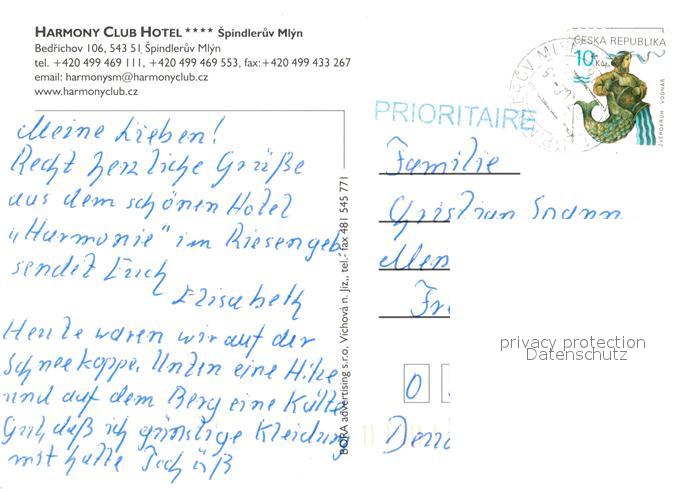 HARMONY CLUB HOTEL **** Špindlerův Mlýn
Bedřichov 106, 543 51 Špindlerův Mlýn
tel. +420 499 469 111, +420 499 469 553, fax:+420 499 433 267
email: harmonysm@harmonyclub.cz
www.harmonyclub.cz
Meine Lieben!
Recht herzliche Grüße
aus dem schönen Hotel
„Harmonie" im Riesengeb.
sendet Erich
Elisabeth
Heute waren wir auf der
Schneekoppe. Unten eine Hitze
und auf dem Berg eine Kälte
Gut, daß ich günstige Kleidung
mit hatte
BORA advertising s.r.o, Víchová n. Jiz., tel.- fax 481 545 771
ČESKÁ REPUBLIKA
10 Kč
ZVĚROKRUH VODNÁŘ
PRIORITAIRE
Familie
Christian
privacy protection
Datenschutz
0